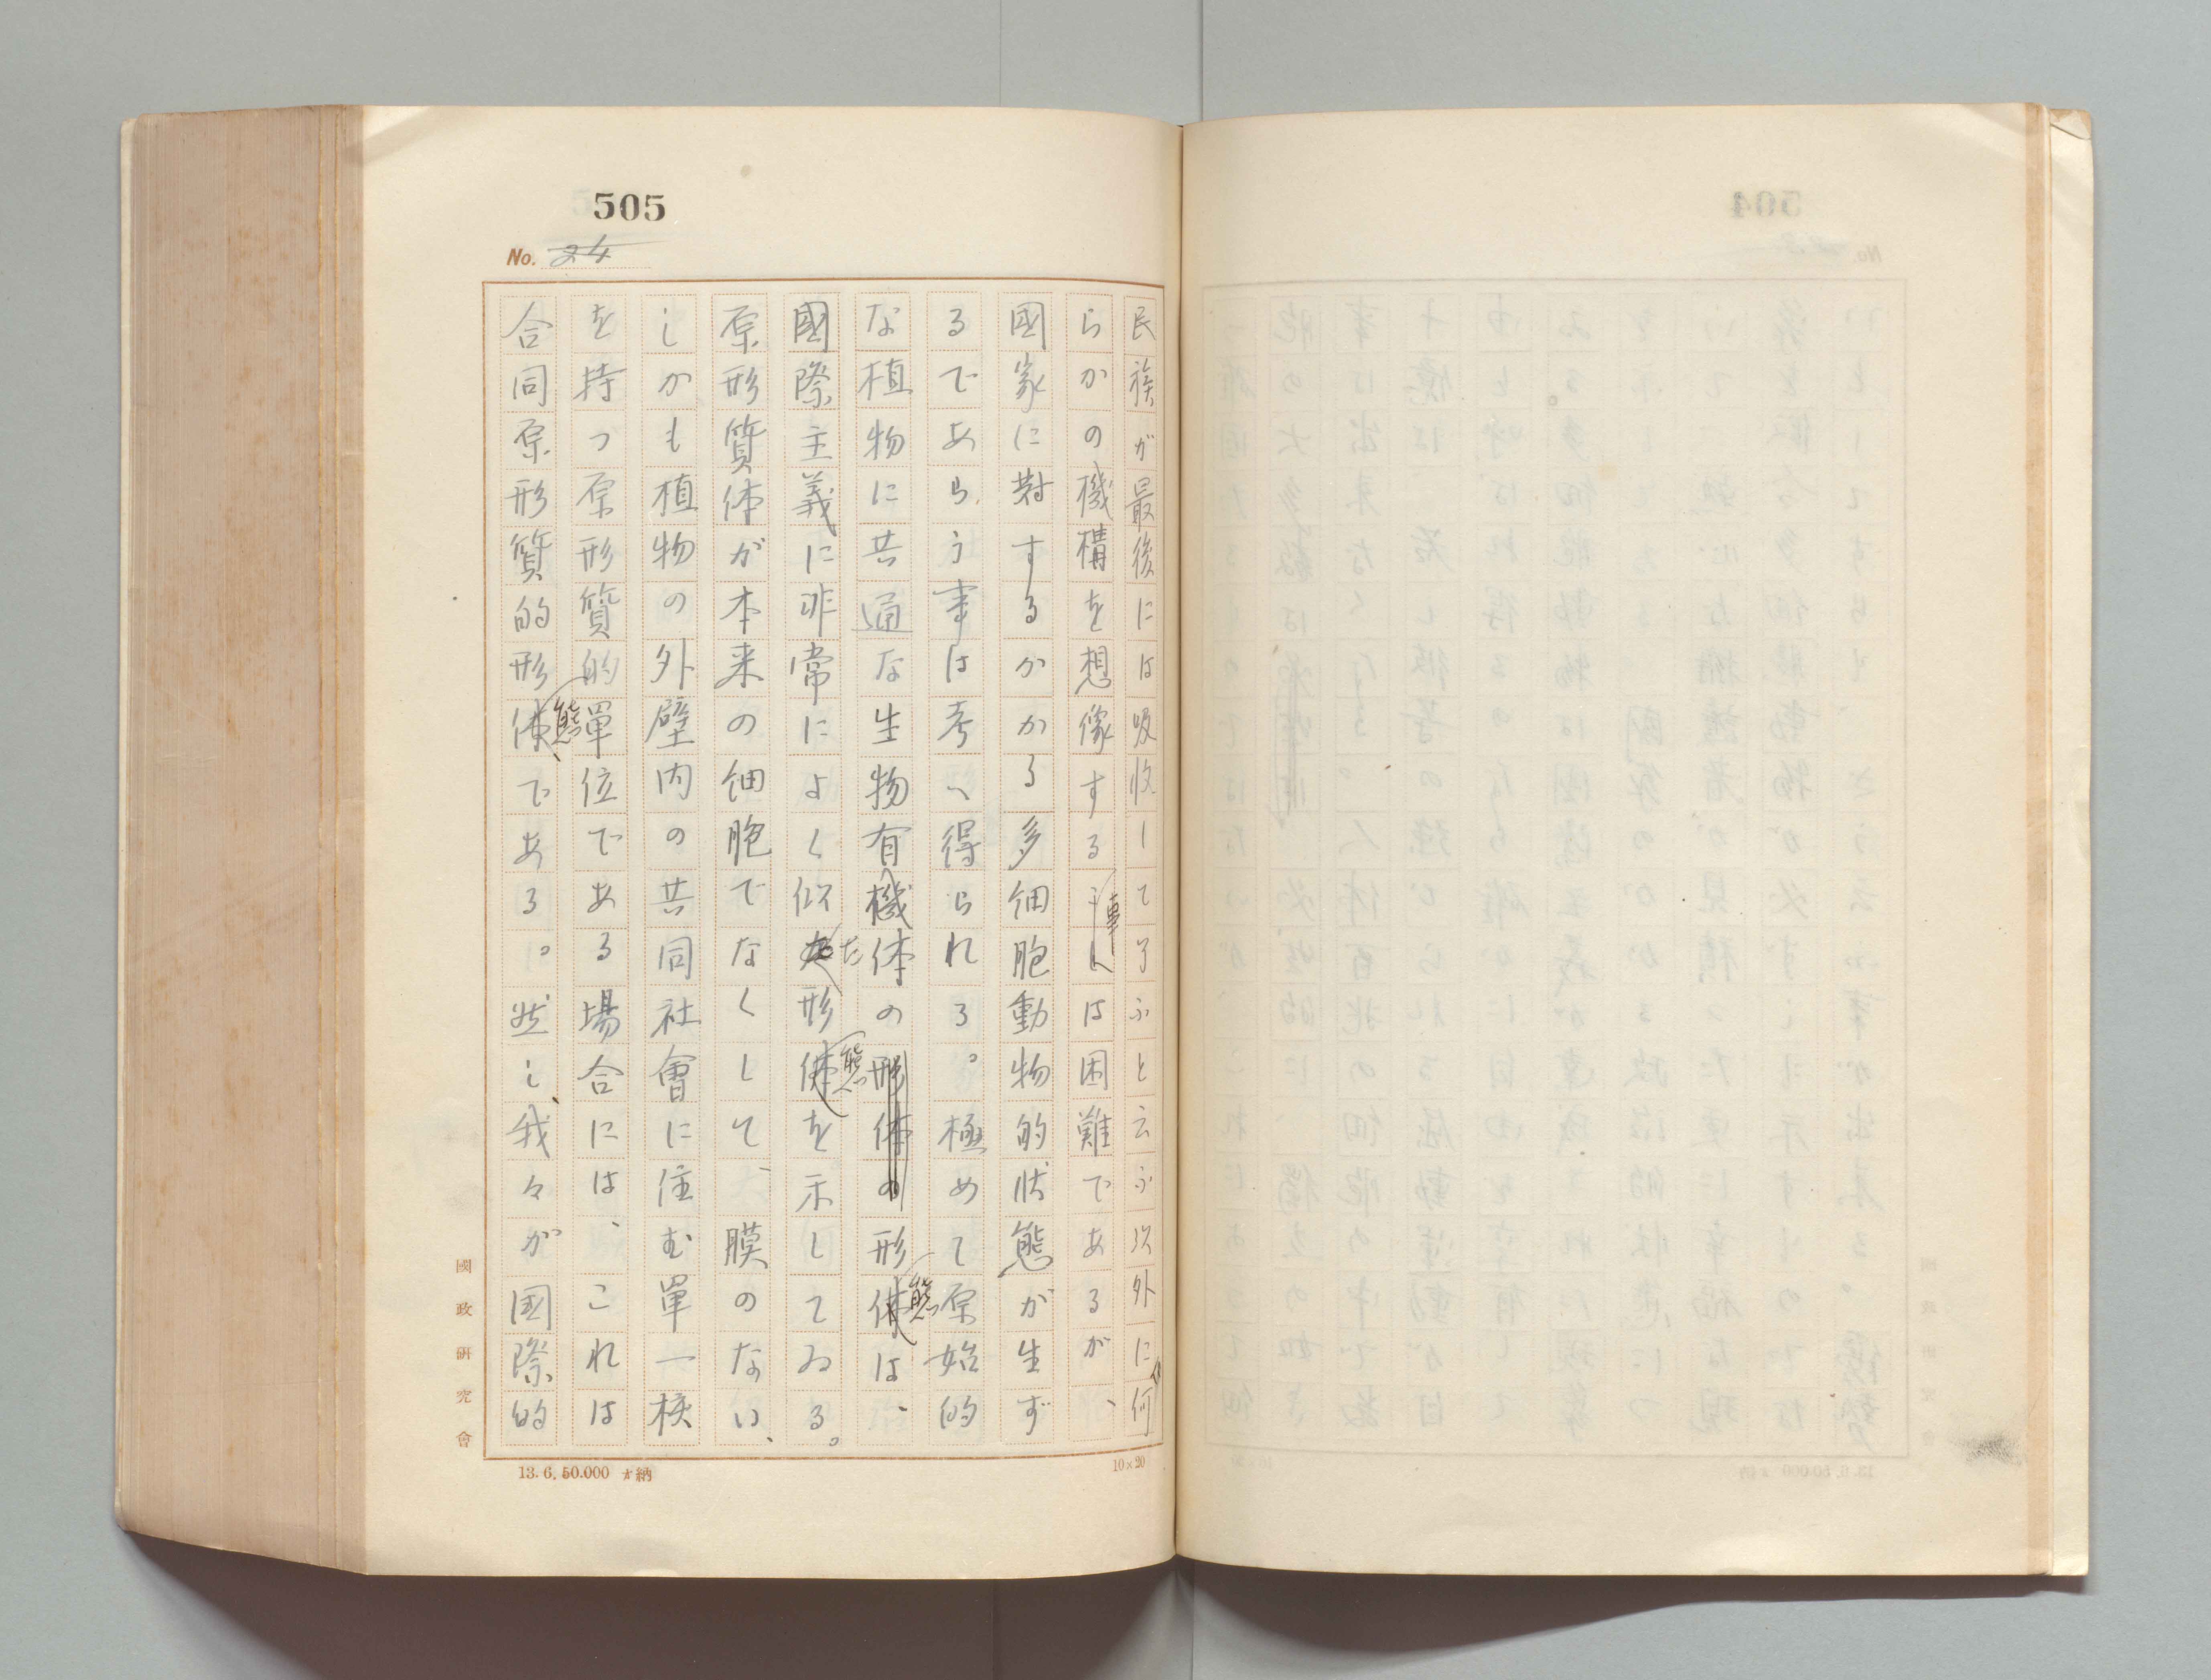 505
No. 24
民族が最後には吸收して了ふと云ふ以外に何
らかの機構を想像する事は困難であるが、
國家に對するかかる多細胞動物的状態が生ず
るであらう事は考へ得られる。極めて原始的
な植物に共通な生物有機体の形体の形態は、
國際主義に非常によく似た形態を示してゐる。
原形質体が本来の細胞でなくして、膜のない、
しかも植物の外壁内の共同社會に住む單一核
を持つ原形質的單位である場合には、これは
合同原形質的形態である。然し、我々が国際的
國政研究會
13.6.50.000 納
10×20